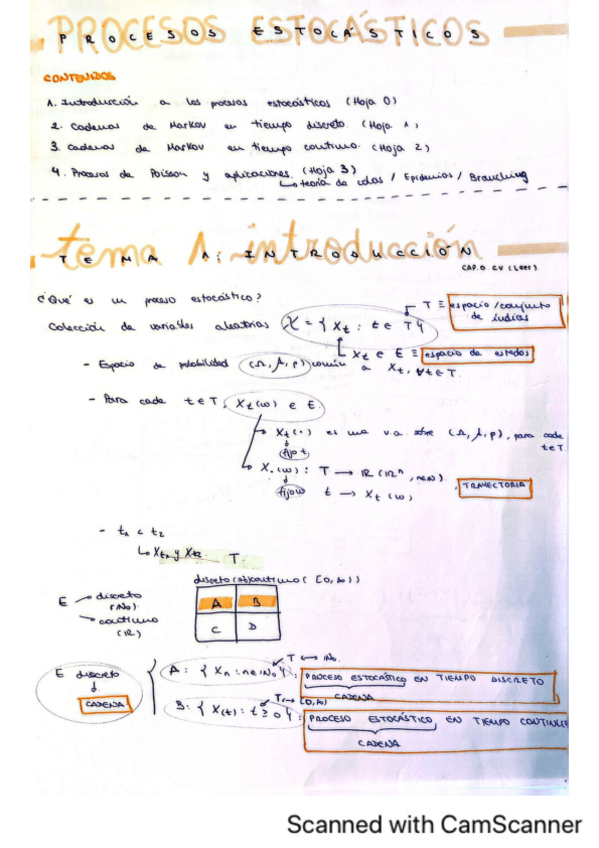 PROCESOS ESTOCÁSTICOS
CONTENIDOS
1. Introducción a los procesos estocásticos (Hoja 0)
2. Cadenas de Markov en tiempo discreto (Hoja 1)
3. Cadenas de Markov en tiempo continuo. (Hoja 2)
4. Procesos de Poisson y aplicaciones. (Hoja 3)
↳ teoría de colas / Epidemias / Branching
tema 1: introducción
TEMA 1: INTRODUCCIÓN
CAP. 0. CV (Leer)
¿Qué es un proceso estocástico?
T ≡ espacio / conjunto de índices
Colección de variables aleatorias X = { Xt : t ∈ T }
Xt ∈ E ≡ espacio de estados
- Espacio de probabilidad (Ω, A, p) común a Xt, ∀t ∈ T.
- Para cada t ∈ T, Xt(ω) ∈ E.
Xt(·) es una v.a. sobre (Ω, A, p), para cada t ∈ T
fijo t
X.(ω) : T → ℝ (ℝⁿ, n∈ℕ).
fijo ω t → Xt(ω)
TRAYECTORIA
- t1 < t2
↳ Xt1 y Xt2. T.
discreto continuo ([0,∞))
E → discreto (ℕ0)
→ continuo (ℝ)
A B
C D
E discreto
CADENA
A: { Xn : n ∈ ℕ0 } : T ↔ ℕ0. PROCESO ESTOCÁSTICO EN TIEMPO DISCRETO
CADENA
B: { X(t) : t ≥ 0 } : T ↔ [0,∞) PROCESO ESTOCÁSTICO EN TIEMPO CONTINUO
CADENA
Scanned with CamScanner